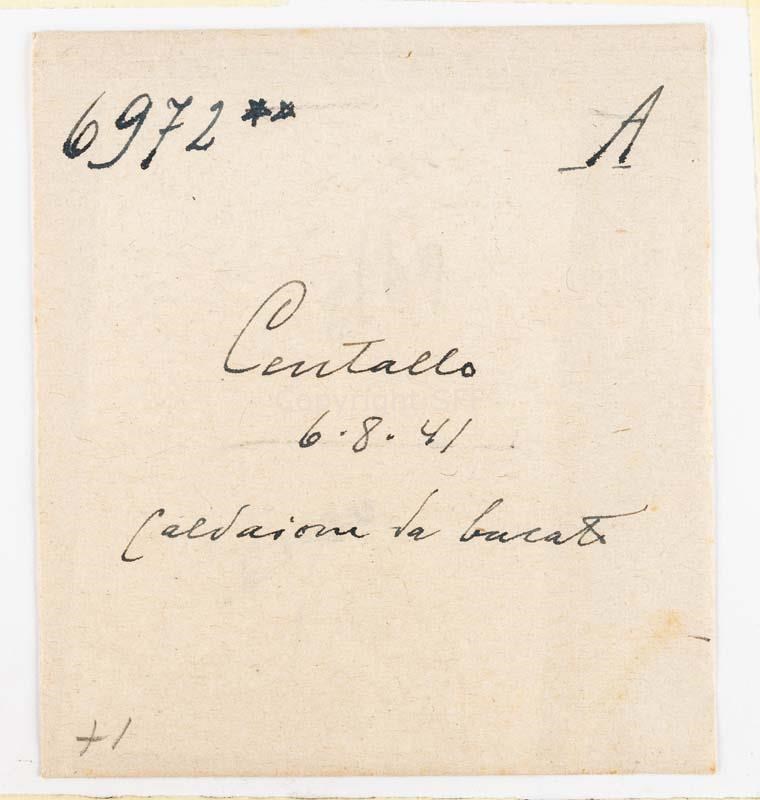 6972** A
Centallo
Copyright SFF
6.8.41
Caldaione da bucato
+1